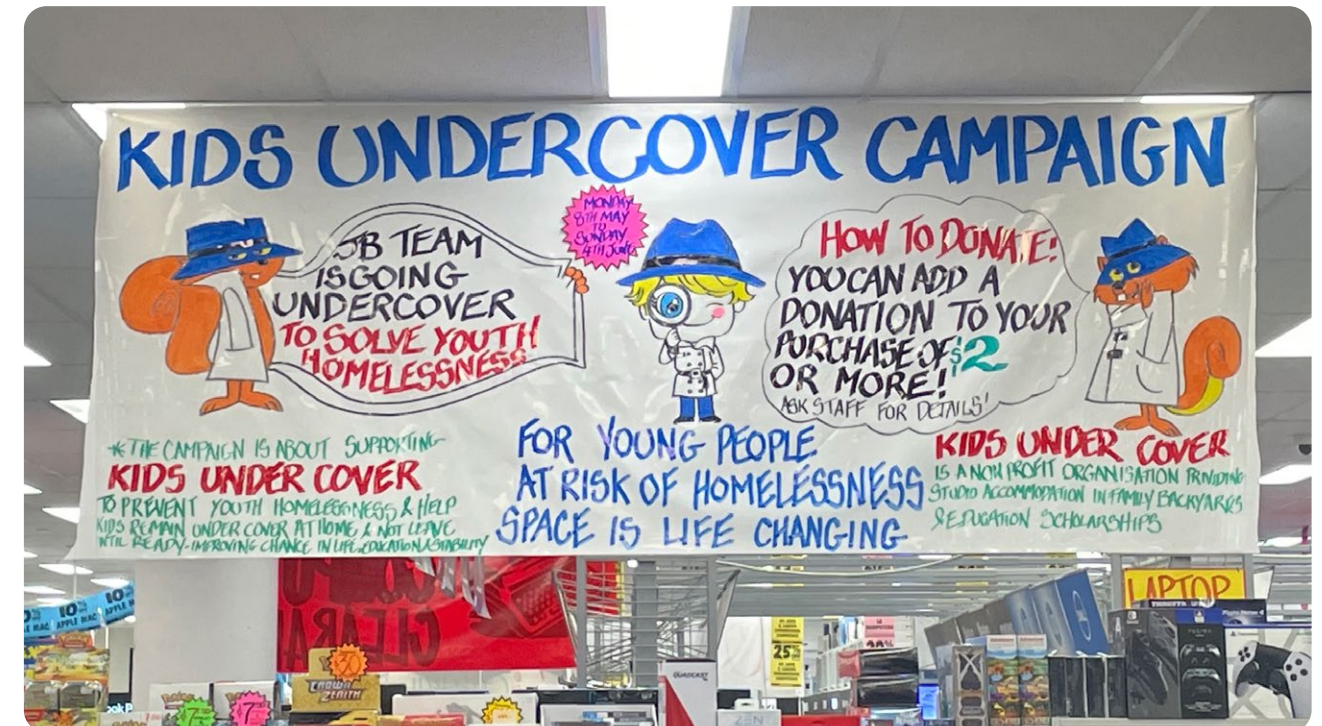 KIDS UNDERCOVER CAMPAIGN
JB TEAM
IS GOING
UNDERCOVER
TO SOLVE YOUTH
HOMELESSNESS
MONDAY
8TH MAY
TO
SUNDAY
4TH JUNE
HOW TO DONATE:
YOU CAN ADD A
DONATION TO YOUR
PURCHASE OF $2
OR MORE!
ASK STAFF FOR DETAILS!
*THE CAMPAIGN IS ABOUT SUPPORTING
KIDS UNDER COVER
TO PREVENT YOUTH HOMELESSNESS & HELP
KIDS REMAIN UNDER COVER AT HOME & NOT LEAVE
UNTIL READY-IMPROVING CHANCE IN LIFE, EDUCATION & STABILITY
FOR YOUNG PEOPLE
AT RISK OF HOMELESSNESS
SPACE IS LIFE CHANGING
KIDS UNDER COVER
IS A NON PROFIT ORGANISATION PROVIDING
STUDIO ACCOMMODATION IN FAMILY BACKYARDS
& EDUCATION SCHOLARSHIPS
LAPTOP
10%
APPLE MAC
25%
30
CROWN
ZENITH
QUADCAST
ZEN
7
7